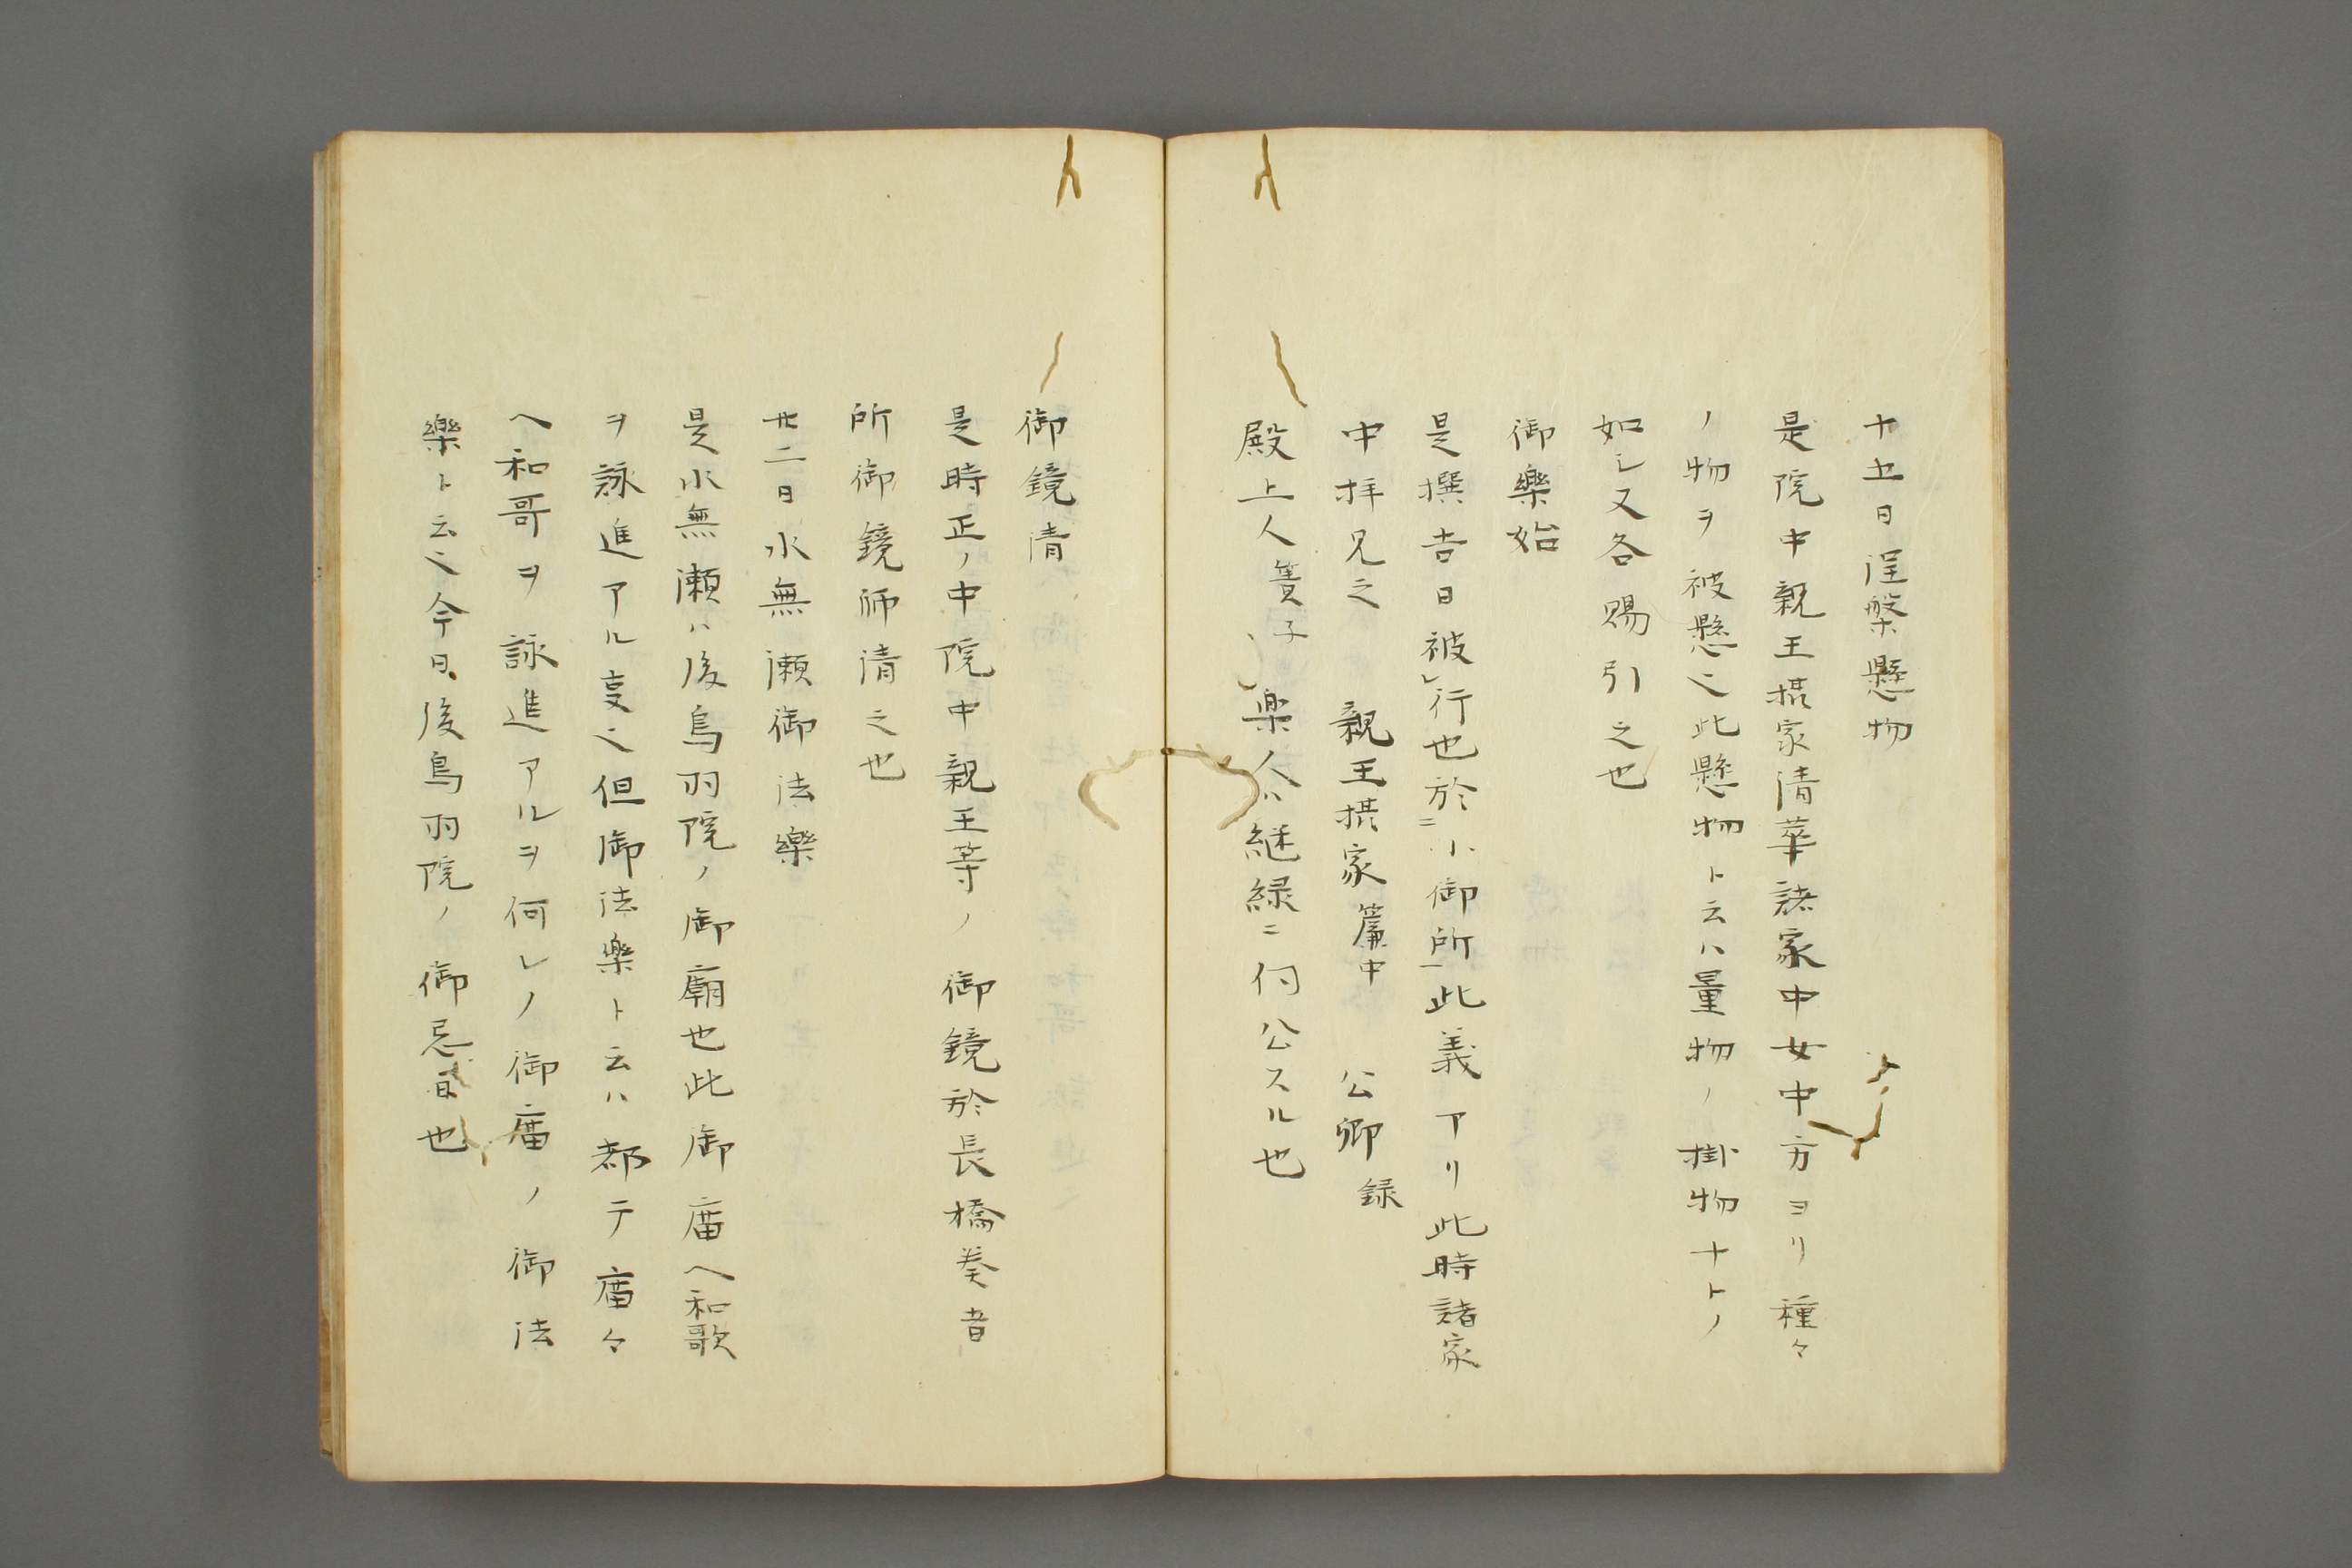 十五日涅槃懸物
是院中親王摂家清華諸家中女中方ヨリ種々
ノ物ヲ被懸之此懸物ト云ハ量物ノ掛物ナトノ
如シ又各賜引之也
御樂始
是撰吉日被レ行也於二小御所一此義アリ此時諸家
中拝見之 親王摂家簾中 公卿録
殿上人簀子 楽人ハ継緑ニ伺公スル也
御鏡清
是時正ノ中院中親王等ノ御鏡於長橋奏者
所御鏡師清之也
廿二日水無瀬御法樂
是水無瀬ハ後鳥羽院ノ御廟也此御庿へ和歌
ヲ詠進アル叓也但御法樂ト云ハ都テ庿々
へ和哥ヲ詠進アルヲ何レノ御庿ノ御法
樂ト云也今日後鳥羽院ノ御忌日也